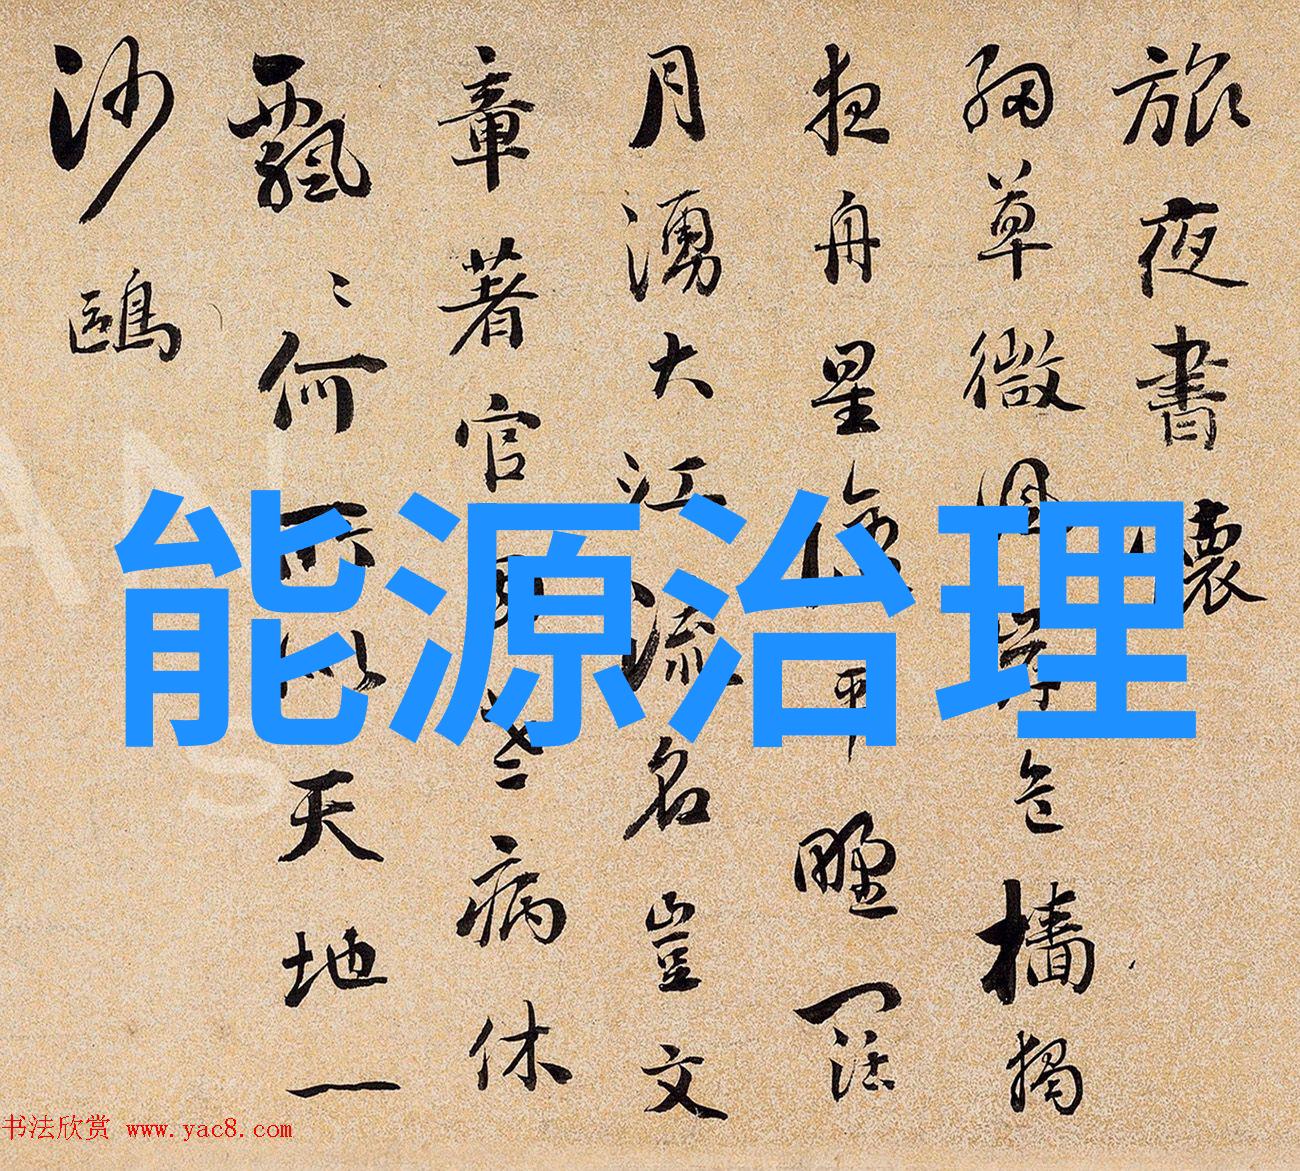 旅夜書懷
細草微風岸危檣獨
夜舟星平野闊
月湧大江流名豈文
章著官老病休
飄〻何所似天地一
沙鷗
能源治理
书法欣赏 www.yac8.com